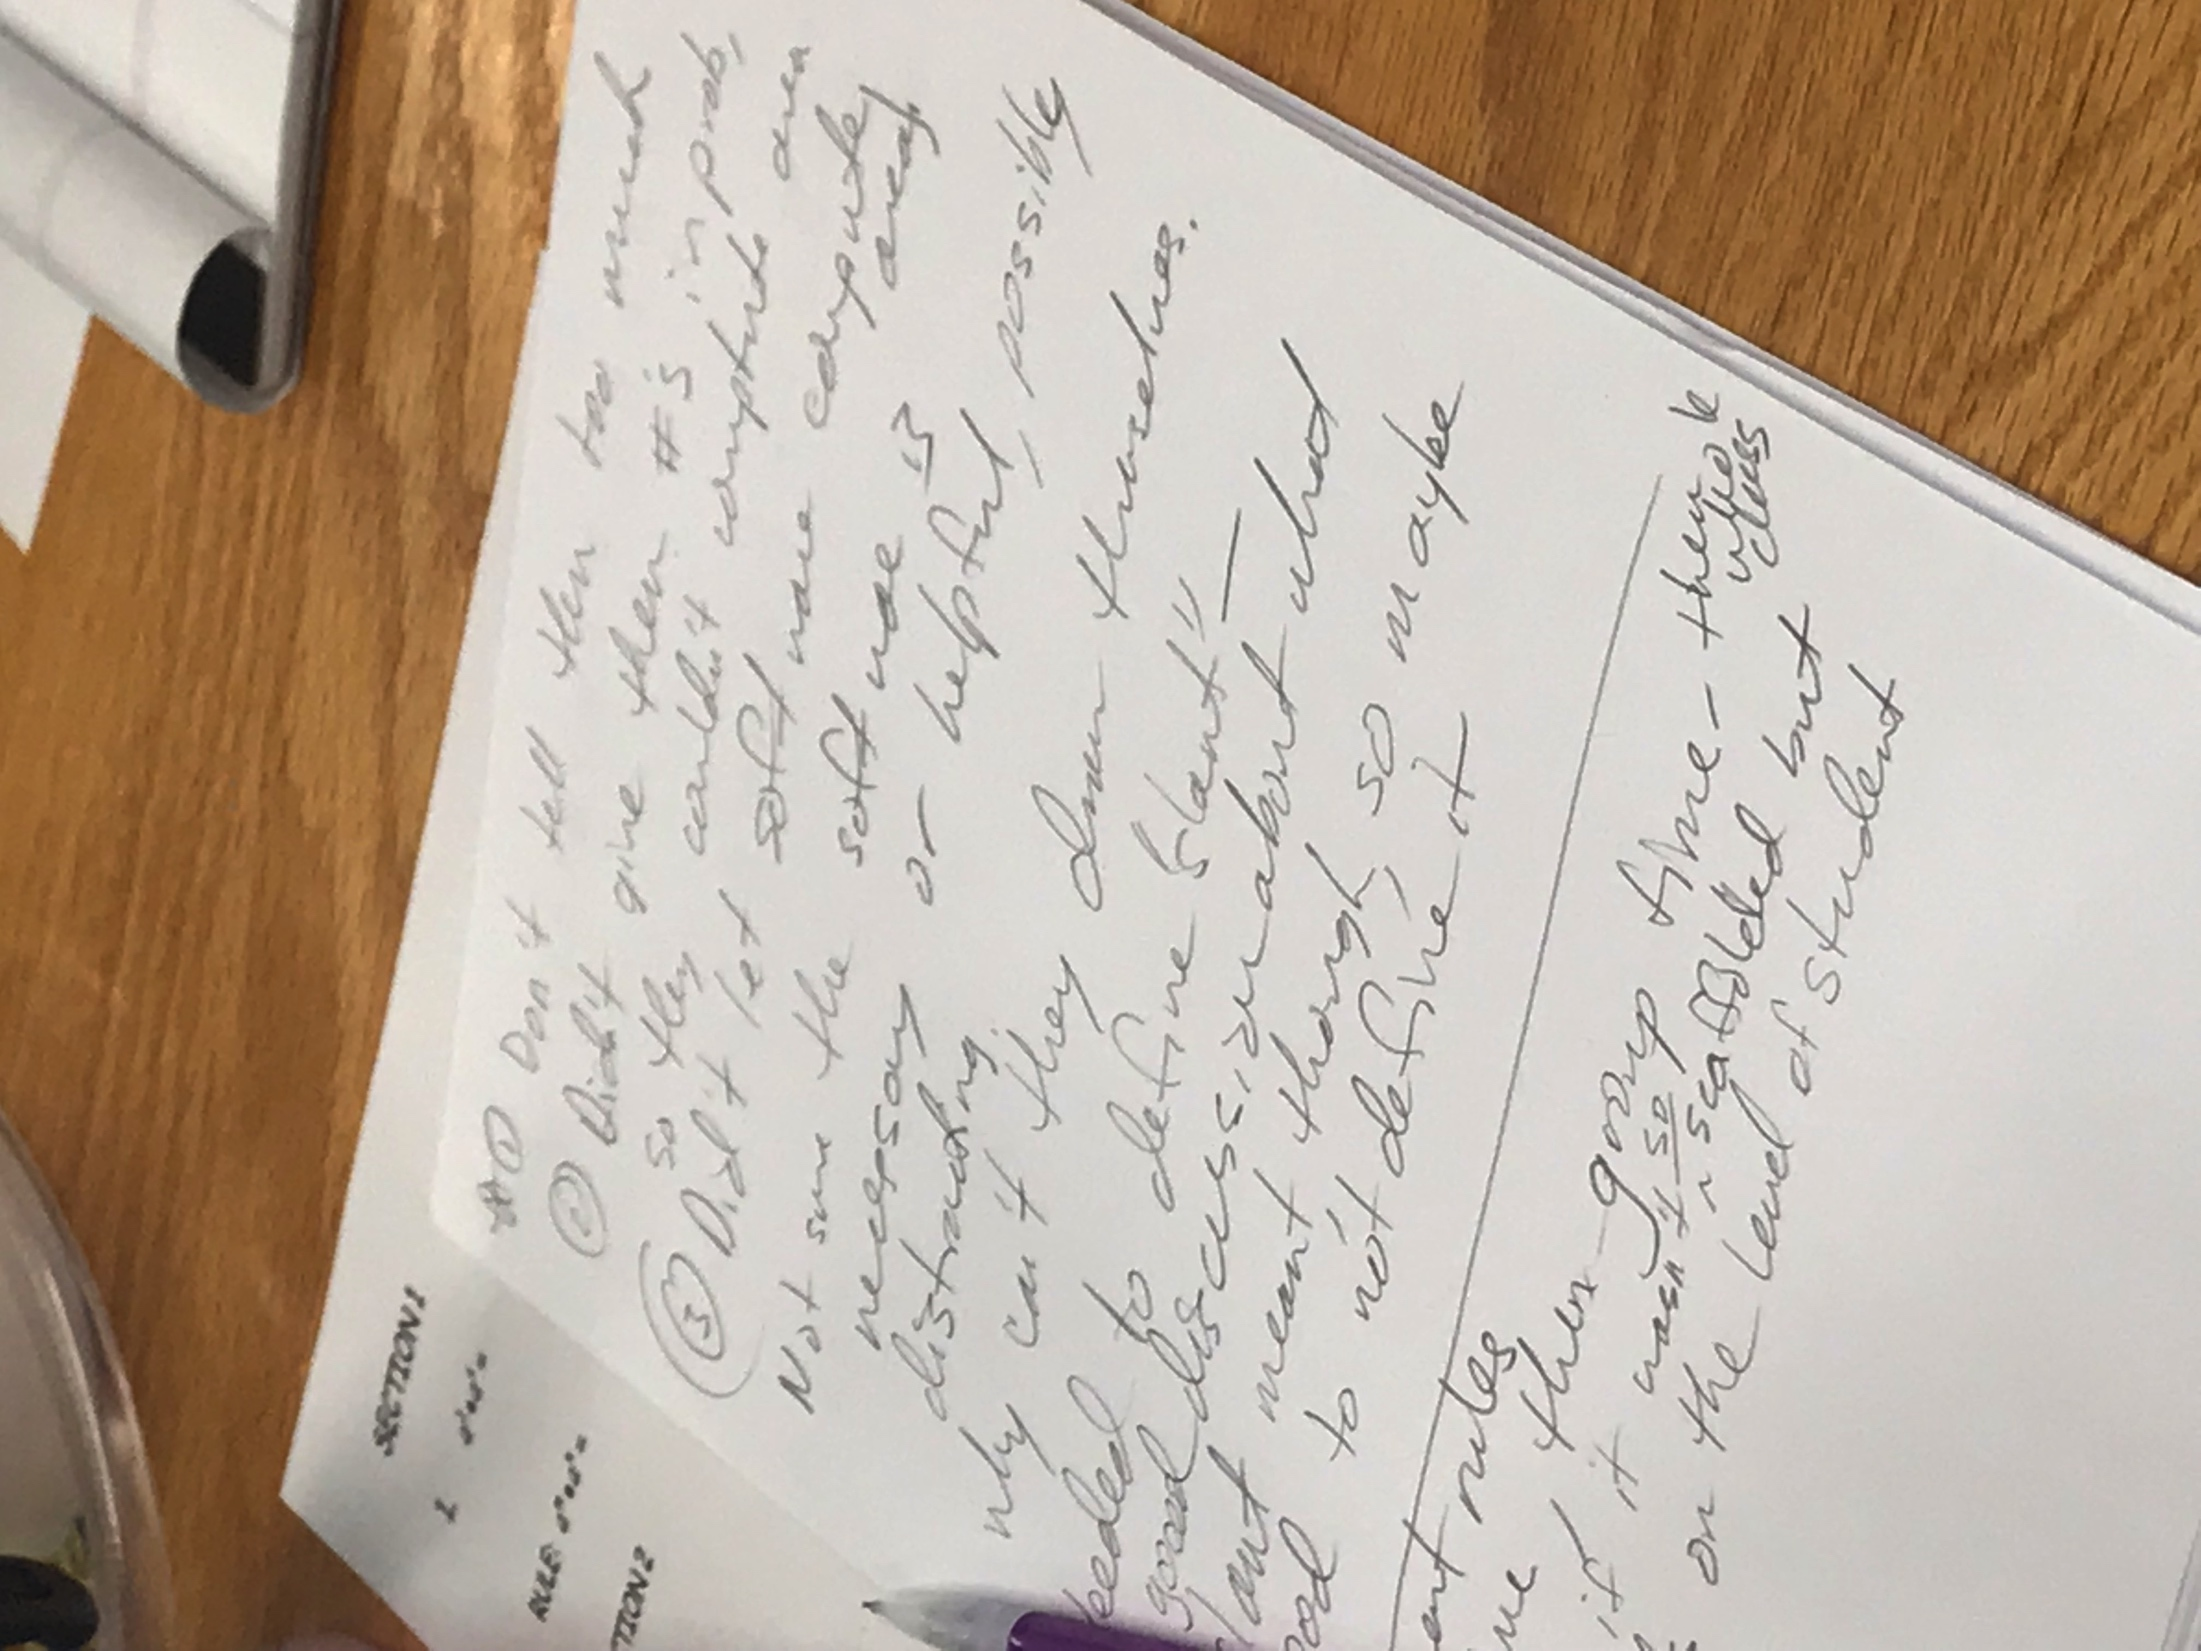 SECTION 1
1
RULE
TION 2
#① Don't tell them too much
② Didn't give them #'s in prob,
so they couldn't compute
③ Didn't let software compute area
Not sure the software is
necessary or helpful, possibly
distracting.
why can't they draw themselves.
eeded to define "slant" —
good discussion about what
lant meant though, so maybe
ood to not define it
ent rules
ue then - group time - then whole class
if it wasn't so scaffolded but
on the level of student